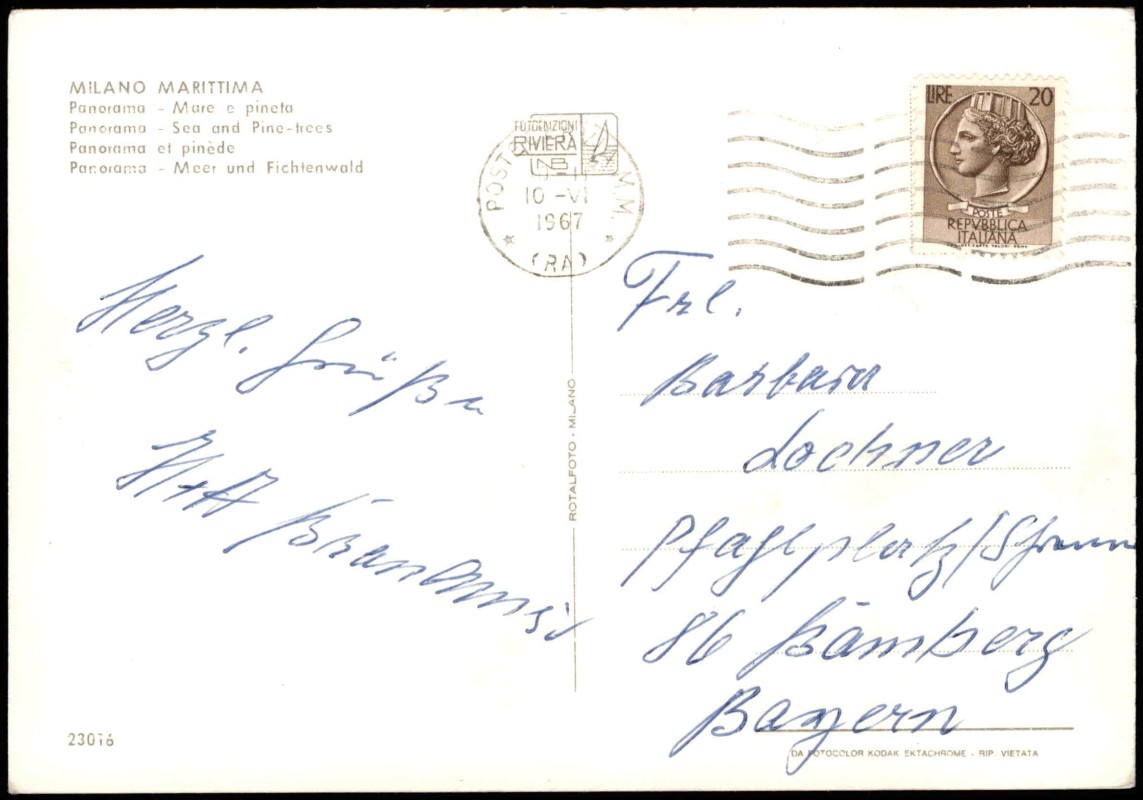 MILANO MARITTIMA
Panorama - Mare e pineta
Panorama - Sea and Pine-trees
Panorama et pinède
Panorama - Meer und Fichtenwald
FOTOEDIZIONI
RIVIERA
POST M.M.
10 -VI
1967
(RA)
LIRE 20
POSTE
REPVBBLICA
ITALIANA
Herzl. Grüße
Frl.
Barbara
Lochner
Pfahlplatz/
86 Bamberg
Bayern
ROTALFOTO - MILANO
23016
DA FOTOCOLOR KODAK EKTACHROME - RIP. VIETATA